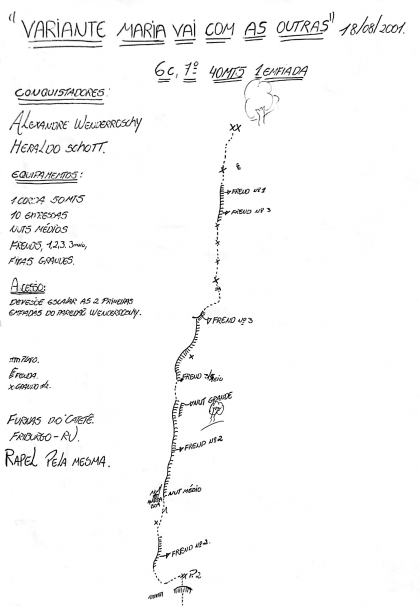 "VARIANTE MARIA VAI COM AS OUTRAS" 18/08/2001.
6c, 1º 40MTS 1 ENFIADA
CONQUISTADORES:
ALEXANDRE WENDEROSCHY
HERALDO SCHOTT.
EQUIPAMENTOS:
1 CORDA 50MTS
10 EXPRESSAS
NUTS MÉDIOS
FRENDS, 1,2,3. 3meio,
FITAS GRANDES.
ACESSO:
DEVESSE ESCALAR AS 2 PRIMEIRAS
ENFIADAS DO PAREDÃO WENDEROSCHY.
FENDA.
FURNAS DO CATETÊ.
FRIBURGO - RJ.
RAPEL PELA MESMA.
XX
FREND Nº 1
FREND Nº 3
FREND Nº 3
FREND
NUT GRANDE
FREND Nº 2
NUT MÉDIO
FREND Nº 2
XX P.2